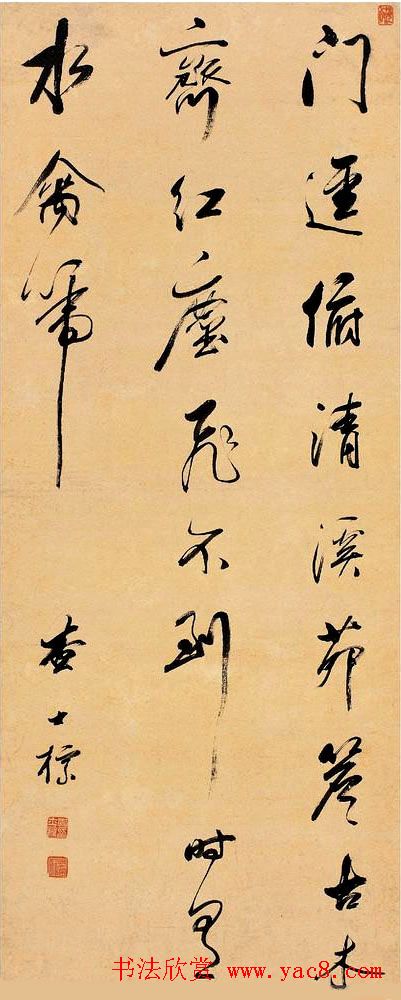 门逕俯清溪茆簷古木
齊紅塵飛不到时有
水禽啼
查士標
书法欣赏 www.yac8.com